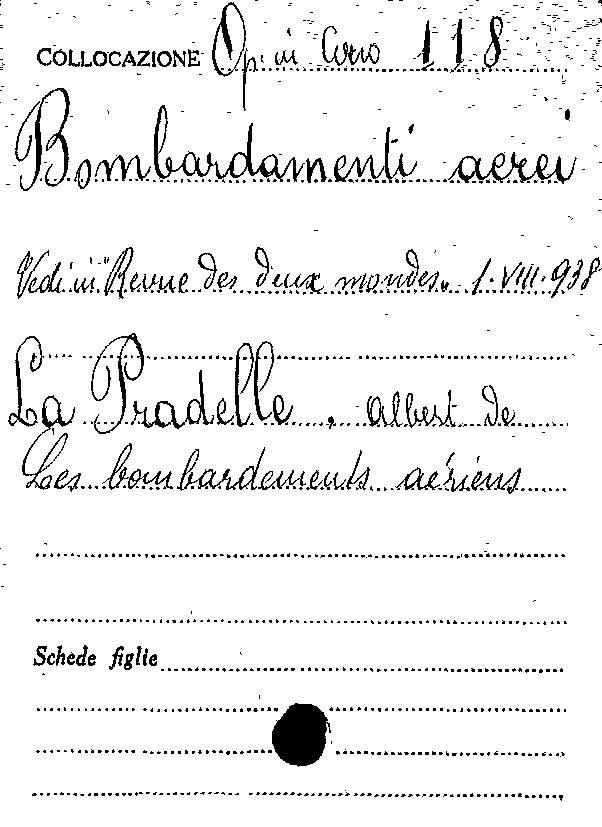 COLLOCAZIONE Op. in Corso 118
Bombardamenti aerei
Vedi in "Revue des deux mondes„ 1.VIII.938
La Pradelle, Albert de
Les bombardements aériens
Schede figlie